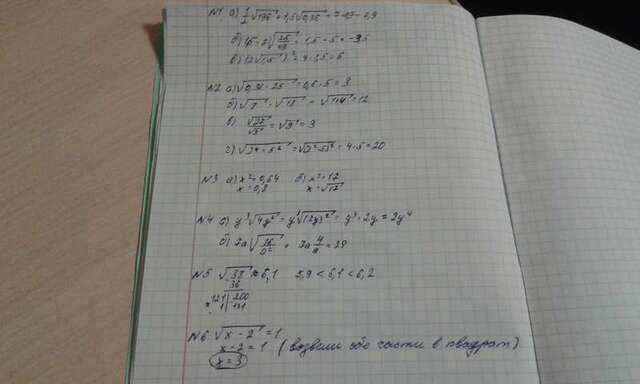 N1 а) 1/2 √196 + 1,5√0,36 = 7 - 0,9
б) 1,5 - 5 = -3,5
в) (2√1,5)² = 4·1,5 = 6
N2 а) √0,36·25 = 0,6·5 = 3
б) √8·√18 = √144 = 12
в) √27/√3 = √9 = 3
г) √2⁴·5² = √(2²·5)² = 4·5 = 20
N3 а) x² = 0,64 б) x² = 17
x = 0,8 x = √17
N4 а) y³√4y² = y³√(2y)² = y³·2y = 2y⁴
б) 7a√16/a² = 7a 4/a = 28
N5 √37 ≈ 6,1 5,9 < 6,1 < 6,2
36
121 | 200
1 | 121
N6 √x - 2 = 1
x - 2 = 1 (возвели обе части в квадрат)
x = 3